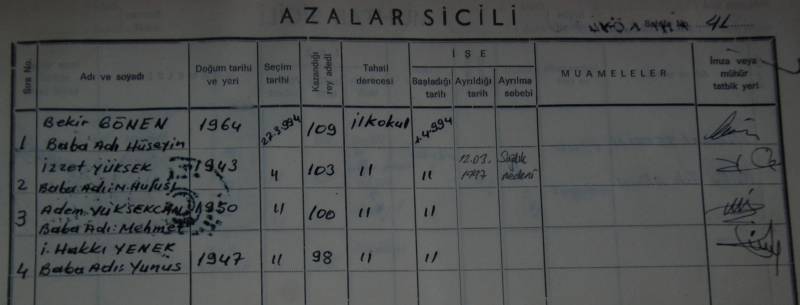 AZALAR SİCİLİ
41
Sıra No.
Adı ve soyadı
Doğum tarihi ve yeri
Seçim tarihi
Kazandığı rey adedi
Tahsil derecesi
İŞE
Başladığı tarih
Ayrıldığı tarih
Ayrılma sebebi
MUAMELELER
İmza veya mühür tatbik yeri
1 Bekir GÖNEN 1964 27.3.994 109 ilkokul 4.994
Baba Adı Hüseyin
2 İzzet YÜKSEK 1943 11 103 11 11 12.03.1997 Sağlık nedeni
Baba Adı: N. Hulusi
3 Adem YÜKSEKCAN 1950 11 100 11 11
Baba Adı: Mehmet
4 i. Hakkı YENEK 1947 11 98 11 11
Baba Adı: Yunus